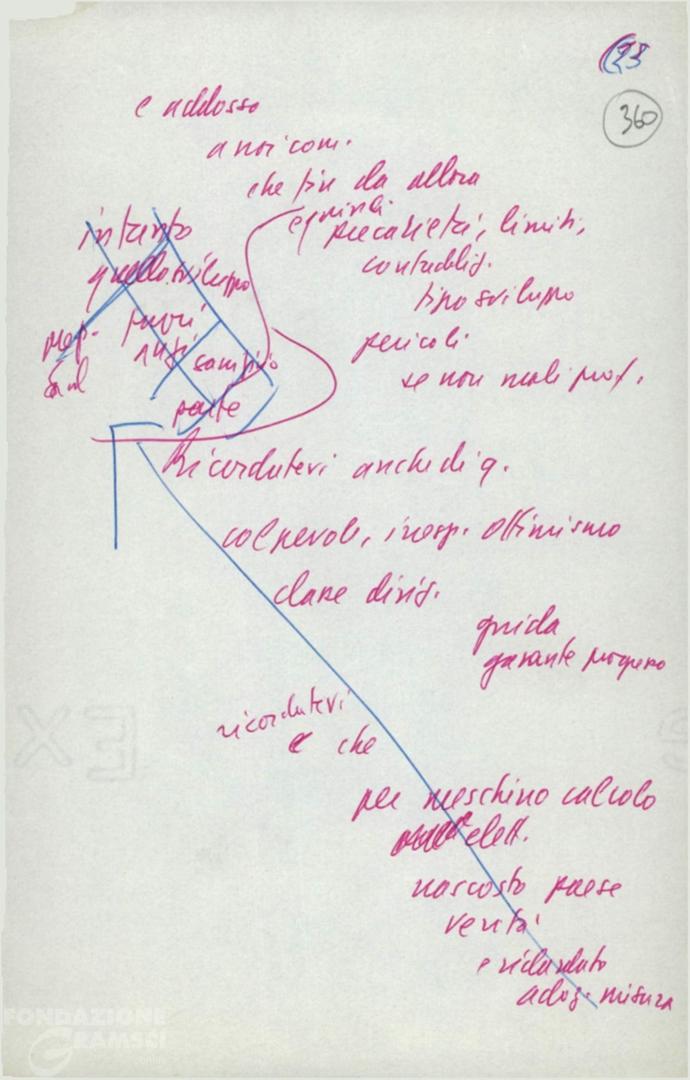 360
e addosso
a noi com.
che fin da allora
e quindi
precarietà, limiti,
contraddiz.
tipo sviluppo
pericoli
se non molt prof.
intanto
quello sviluppo
fuori
parte
Ricordatevi anche di q.
colpevole, inesp. ottimismo
classe dirig.
guida
garante progresso
ricordatevi
e che
per meschino calcolo
elett.
nascosto paese
verità
e ritardato
adoz. misura
FONDAZIONE
GRAMSCI